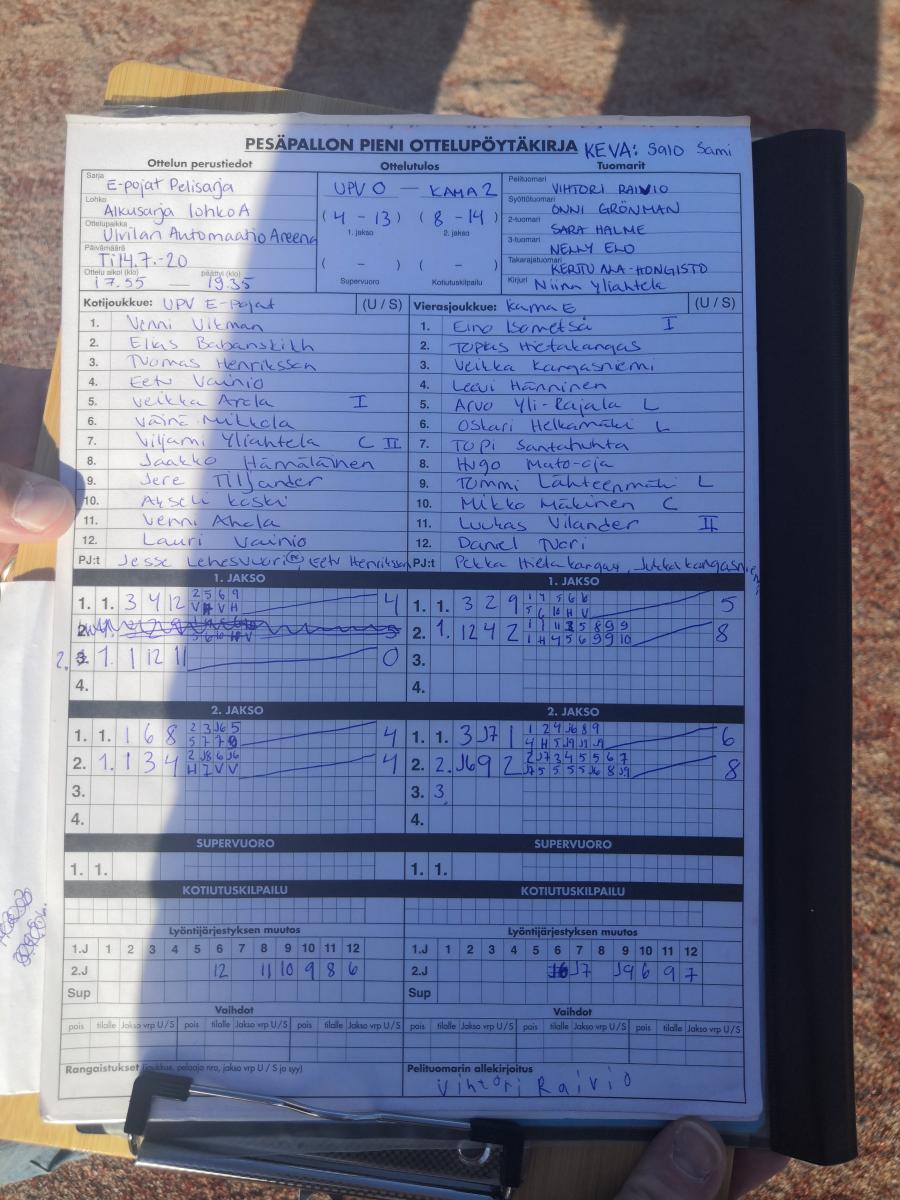 PESÄPALLON PIENI OTTELUPÖYTÄKIRJA KEVA: Salo Sami
Ottelun perustiedot Ottelutulos Tuomarit
Sarja E-pojat Pelisarja
Lohko Alkusarja lohko A
Ottelupaikka Ulvilan Automaatio Areena
Päivämäärä Ti 14.7.-20
Ottelu alkoi (klo) 17.55 — päättyi (klo) 19.35
UPV 0 — KAMA 2
(4 - 13) (8 - 14)
1. jakso 2. jakso
( - ) ( - )
Supervuoro Kotiutuskilpailu
Pelituomari VIHTORI RAIVIO
Syöttötuomari ONNI GRÖNMAN
2-tuomari SARA HALME
3-tuomari NELLY ELO
Takarajatuomari KERTTU ALA-HONGISTO
Kirjuri Niina Yliahtela
Kotijoukkue: UPV E-pojat (U / S)
1. Venni Vikman
2. Elias
3. Tuomas Henriksson
4. Eetu Vainio
5. Veikka Arola I
6. Väinö Mikkola
7. Viljami Yliahtela C II
8. Jaakko Hämäläinen
9. Jere Tiljander
10. Akseli Koski
11. Venni Ahola
12. Lauri Vainio
PJ:t Jesse Lehesvuori, Eetu Henriksson
Vierasjoukkue: Kama E (U / S)
1. Eino Isometsä I
2. Topias Hietakangas
3. Veikka Kangasniemi
4. Leevi Hänninen
5. Arvo Yli-Rajala L
6. Oskari Helkamäki L
7. Topi Santahuhta
8. Hugo Mato-oja
9. Tommi Lähteenmäki L
10. Mikko Mäkinen C
11. Luukas Vilander II
12. Daniel Nori
PJ:t Pekka Hietakangas, Jukka Kangasniemi
1. JAKSO 1. JAKSO
1. 1. 3 4 12 2 5 6 9 4
V H V H
2. 3. 1. 1 12 11 0
4.
1. 1. 3 2 9 1 4 5 6 6 5
5 6 10 H V
2. 1. 12 4 2 1 1 1 2 5 8 9 9 8
1 H 4 5 6 9 9 10
3.
4.
2. JAKSO 2. JAKSO
1. 1. 1 6 8 2 3 J6 5 4
5 7 7 9
2. 1. 1 3 4 2 J8 6 J6 4
H I V V
3.
4.
1. 1. 3 J7 1 1 2 4 J6 8 9 6
4 H 5 J9 J9 J9
2. 2. J6 9 2 2 J7 3 4 5 5 6 7 8
J7 5 5 5 5 J6 8 J9
3. 3
4.
SUPERVUORO SUPERVUORO
1. 1. 1. 1.
KOTIUTUSKILPAILU KOTIUTUSKILPAILU
Lyöntijärjestyksen muutos Lyöntijärjestyksen muutos
1.J 1 2 3 4 5 6 7 8 9 10 11 12 1.J 1 2 3 4 5 6 7 8 9 10 11 12
2.J 12 11 10 9 8 6 2.J J7 J9 6 9 7
Sup Sup
Vaihdot Vaihdot
pois tilalle Jakso vrp U / S pois tilalle Jakso vrp U / S pois tilalle Jakso vrp U / S pois tilalle Jakso vrp U / S pois tilalle Jakso vrp U / S pois tilalle Jakso vrp U / S
Rangaistukset (joukkue, pelaaja nro, jakso vrp U / S ja syy) Pelituomarin allekirjoitus
Vihtori Raivio